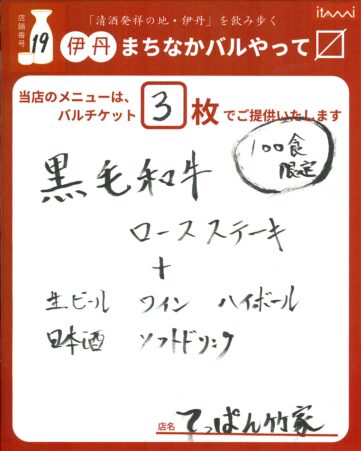 「清酒発祥の地・伊丹」を飲み歩く
itami
店舗番号
19
伊丹 まちなかバルやって〼
当店のメニューは、
バルチケット 3 枚でご提供いたします
100食
限定
黒毛和牛
ロースステーキ
+
生ビール ワイン ハイボール
日本酒 ソフトドリンク
店名 てっぱん竹家